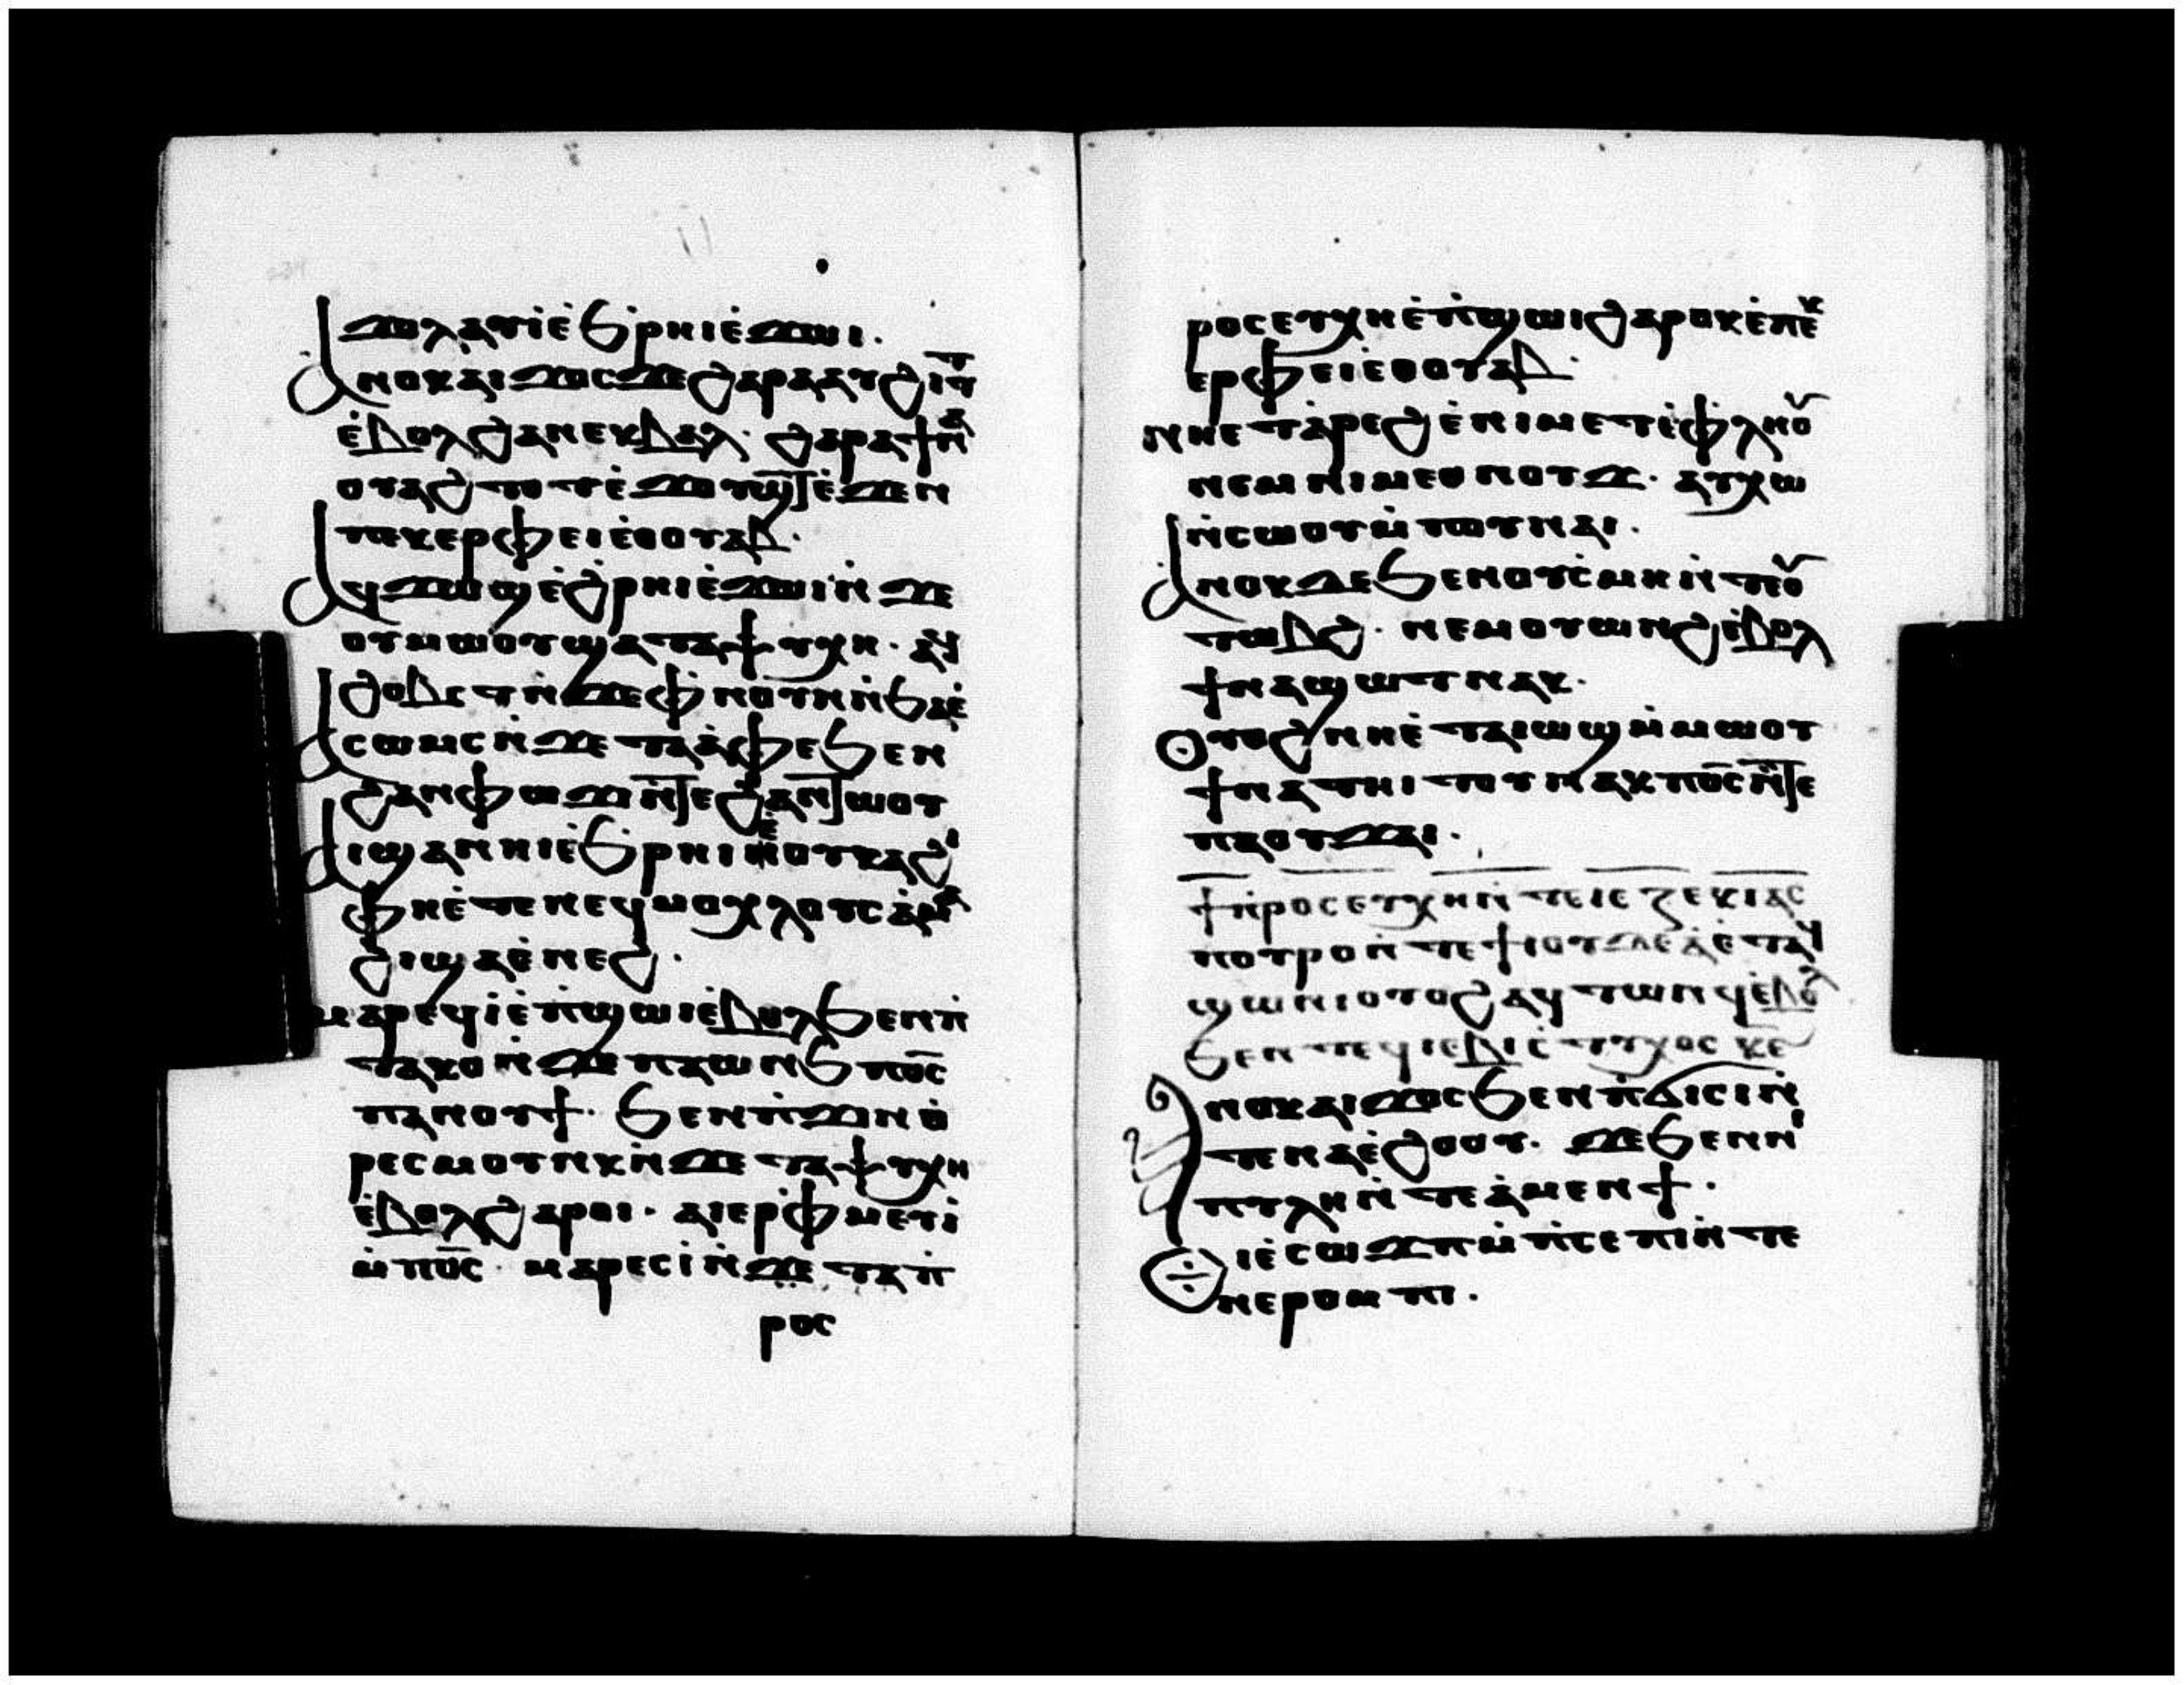 ⲙⲟⲗⲁⲩⲓⲉ̀ϧ̀ⲣⲏⲓⲉ̀ϫⲱⲓ.
ⲁⲛⲟⲕⲁⲓϫⲟⲥϫⲉϩⲁⲣⲁⲁⲩϩⲓⲧⲧ
ⲉ̀ⲃⲟⲗϩⲁⲛⲉⲕⲃⲁⲗ· ϩⲁⲣⲁϯⲛⲁ
ⲟⲩⲁϩⲧⲟⲧⲉ̀ϫⲟⲩϣⲧⲉ̀ϫⲉⲛ
ⲡⲉⲕⲉⲣⲫⲉⲓⲉ̀ⲑⲟⲩⲁⲃ.
ⲁϥϫⲱϣⲉ̀ϩ̀ⲣⲏⲓⲉ̀ϫⲱⲓⲛ̀ϫⲉ
ⲟⲩⲙⲱⲟⲩϣⲁⲧⲁⲯⲩⲭⲏ· ⲁϥ
ϩⲟⲃⲥⲧⲛ̀ϫⲉⲫⲛⲟⲩⲛⲛ̀ϧⲁⲉ̀
ⲁⲥⲱⲙⲥⲛ̀ϫⲉⲧⲁⲁ̀ⲫⲉϧⲉⲛ
ϩⲁⲛⲫⲱϫⲛ̀ⲧⲉϩⲁⲛⲧⲱⲟⲩ
ⲁⲓϣⲁⲛⲛⲓⲉ̀ϧ̀ⲣⲏⲓⲉ̀ⲟⲩⲕⲁϩⲓ
ⲫⲏⲉ̀ⲧⲉⲛⲉϥⲙⲟⲭⲗⲟⲩⲥⲁ̀ⲙⲁ
ϩⲓϣⲁⲉ̀ⲛⲉϩ.
ⲙⲁⲣⲉϥⲓⲉ̀ⲡ̀ϣⲱⲓⲉ̀ⲃⲟⲗϧⲉⲛⲡ̀
ⲧⲁⲕⲟⲛ̀ϫⲉⲡⲁⲱⲛϧⲡⲟ̅ⲥ̅
ⲡⲁⲛⲟⲩϯ· ϧⲉⲛⲡ̀ϫⲓⲛⲑ̀
ⲣⲉⲥⲙⲟⲩⲛⲕⲛ̀ϫⲉⲧⲁⲯⲩⲭⲏ
ⲉ̀ⲃⲟⲗϩⲁⲣⲟⲓ· ⲁⲓⲉⲣⲫ̀ⲙⲉⲩⲓ̀
ⲙ̀ⲡⲟ̅ⲥ̅· ⲙⲁⲣⲉⲥⲓ̀ⲛ̀ϫⲉⲧⲁⲡ̀
ⲣⲟⲥ
ⲣⲟⲥⲉⲩⲭⲏⲉ̀ⲡ̀ϣⲱⲓϩⲁⲣⲟⲕⲉ̀ⲡⲉⲕ
ⲉⲣⲫⲉⲓⲉⲑⲟⲩⲁⲃ·
ⲛⲏⲉⲧⲁ̀ⲣⲉϩⲉ̀ⲛⲓⲙⲉⲧⲉ̀ⲫⲗⲏⲟⲩ
ⲛⲉⲙⲛⲓⲙⲉⲑⲛⲟⲩϫ· ⲁⲩⲭⲱ
ⲛ̀ⲥⲱⲟⲩⲙ̀ⲡⲟⲩⲛⲁⲓ.
ⲁⲛⲟⲕⲇⲉϧⲉⲛⲟⲩⲥ̀ⲙⲏⲛ̀ⲧⲟⲩ
ⲧⲱⲃϩ· ⲛⲉⲙⲟⲩⲱⲛϩⲉ̀ⲃⲟⲗ
ϯⲛⲁϣⲱⲧⲛⲁⲕ·
ⲟⲩⲟϩⲛⲏⲉ̀ⲧⲁⲓⲱϣⲙ̀ⲙⲱⲟⲩ
ϯⲛⲁⲧⲏⲓⲧⲟⲩⲛⲁⲕⲡⲟ̅ⲥ̅ⲛ̀ⲧⲉ
ⲡⲁⲟⲩϫⲁⲓ.
ϯⲡ̀ⲣⲟⲥⲉⲩⲭⲏⲛ̀ⲧⲉⲓⲉⲍⲉⲕⲓⲁⲥ
ⲡⲟⲩⲣⲟⲛ̀ⲧⲉϯⲓⲟⲩⲇⲉⲁ̀ⲉ̀ⲧⲁϥ
ϣⲱⲛⲓⲟⲩⲟϩⲁϥⲧⲱⲛϥⲉ̀ⲃⲟⲗ
ϧⲉⲛⲡⲉϥⲓⲉⲃⲓⲥ̀ⲧⲩⲭⲟⲥ ⲕ̅ⲉ̅
ⲁⲛⲟⲕⲁⲓϫⲟⲥϧⲉⲛⲡ̀ϭⲓⲥⲓⲛ̀
ⲧⲉⲛⲁⲉ̀ϩⲟⲟⲩ· ϫⲉϧⲉⲛⲛⲓ
ⲡⲩⲗⲏⲛ̀ⲧⲉⲁ̀ⲙⲉⲛϯ.
ⲉⲓⲉ̀ⲥⲱϫⲡⲙ̀ⲡ̀ⲥⲉⲡⲓⲛ̀ⲧⲉ
ⲛⲉⲣⲟⲙⲡⲓ.